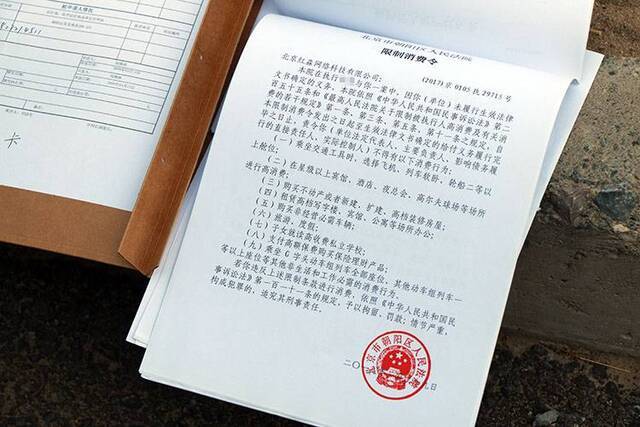 北京市朝阳区人民法院
限制消费令
(2017)京 0105 执 29715 号
北京红淼网络科技有限公司:
本院在执行 为你一案中,因你(单位)未履行生效法律
文书确定的义务,本院依照《中华人民共和国民事诉讼法》第二
百五十五条和《最高人民法院关于限制被执行人高消费及有关消
费的若干规定》第一条、第三条、第五条、第十一条之规定,自
本限制消费令发出之日起至生效法律文书确定的给付义务履行完
毕之日止,责令你(单位法定代表人、主要负责人、影响债务履
行的直接责任人、实际控制人)不得有以下消费行为:
(一)乘坐交通工具时,选择飞机、列车软卧、轮船二等以
上舱位;
(二)在星级以上宾馆、酒店、夜总会、高尔夫球场等场所
进行高消费;
(三)购买不动产或者新建、扩建、高档装修房屋;
(四)租赁高档写字楼、宾馆、公寓等场所办公;
(五)购买非经营必需车辆;
(六)旅游、度假;
(七)子女就读高收费私立学校;
(八)支付高额保费购买保险理财产品;
(九)乘坐 G 字头动车组列车全部座位、其他动车组列车一
等以上座位等其他非生活和工作必需的消费行为。
若你违反上述限制条款进行消费,依照《中华人民共和国民
事诉讼法》第一百一十一条的规定,予以拘留、罚款;情节严重,
构成犯罪的,追究其刑事责任。
二〇
九日
北京市朝阳区人民法院
卡